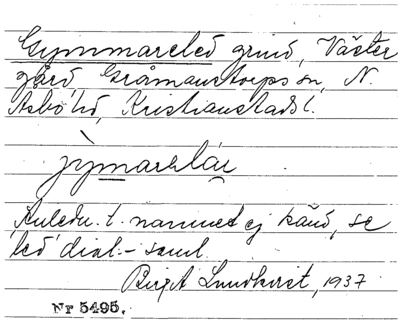 Gymmareled grind, Väster
gård Gråmanstorps sn, N.
Åsbo hd, Kristianstads l.
jỳmarelár
Anledn. t. namnet ej känd, se
led dial.-saml.
Birgit Lundkvist, 1937
Nr 5495.